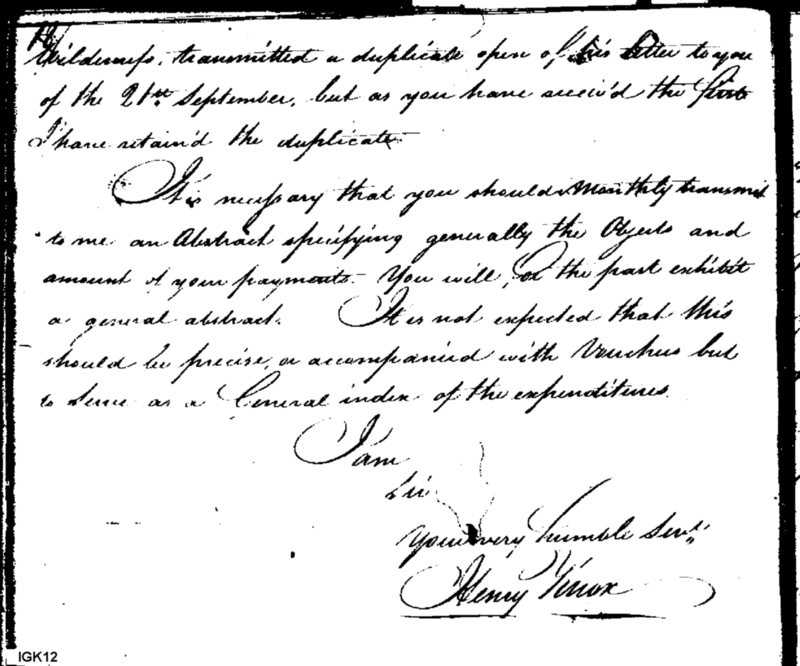 Wilderness, transmitted a duplicate open of his letter to you
of the 21st September, but as you have receiv'd the first
I have retain'd the duplicate
It is necessary that you should Monthly transmit
to me an Abstract specifying generally the Objects and
amount of your payments. You will, for the past exhibit
a general abstract. It is not expected that this
should be precise, or accompanied with Vouchers but
to serve as a General index of the expenditures.
I am
Sir
Your very humble Servt
Henry Knox
IGK12